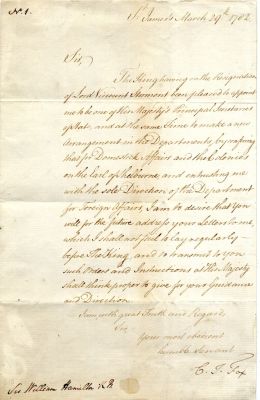 No. 1.
St. James's March 29th. 1782.
Sir,
The King having on the Resignation
of Lord Viscount Stormont been pleased to appoint
me to be one of His Majesty's Principal Secretaries
of State, and at the same Time to make a new
arrangement in the Departments, by conferring
that for Domestick Affairs and the Colonies
on the Earl of Shelburne, and entrusting me
with the sole Direction of the Department
for Foreign Affairs, I am to desire that you
will for the future address your Letters to me,
which I shall not fail to lay regularly
before The King, and to transmit to you
such Orders and Instructions as His Majesty
shall think proper to give for your Guidance
and Direction.
I am with great Truth and Regard,
Sir
Your most obedient
humble Servant
C. J. Fox
Sir William Hamilton K.B.